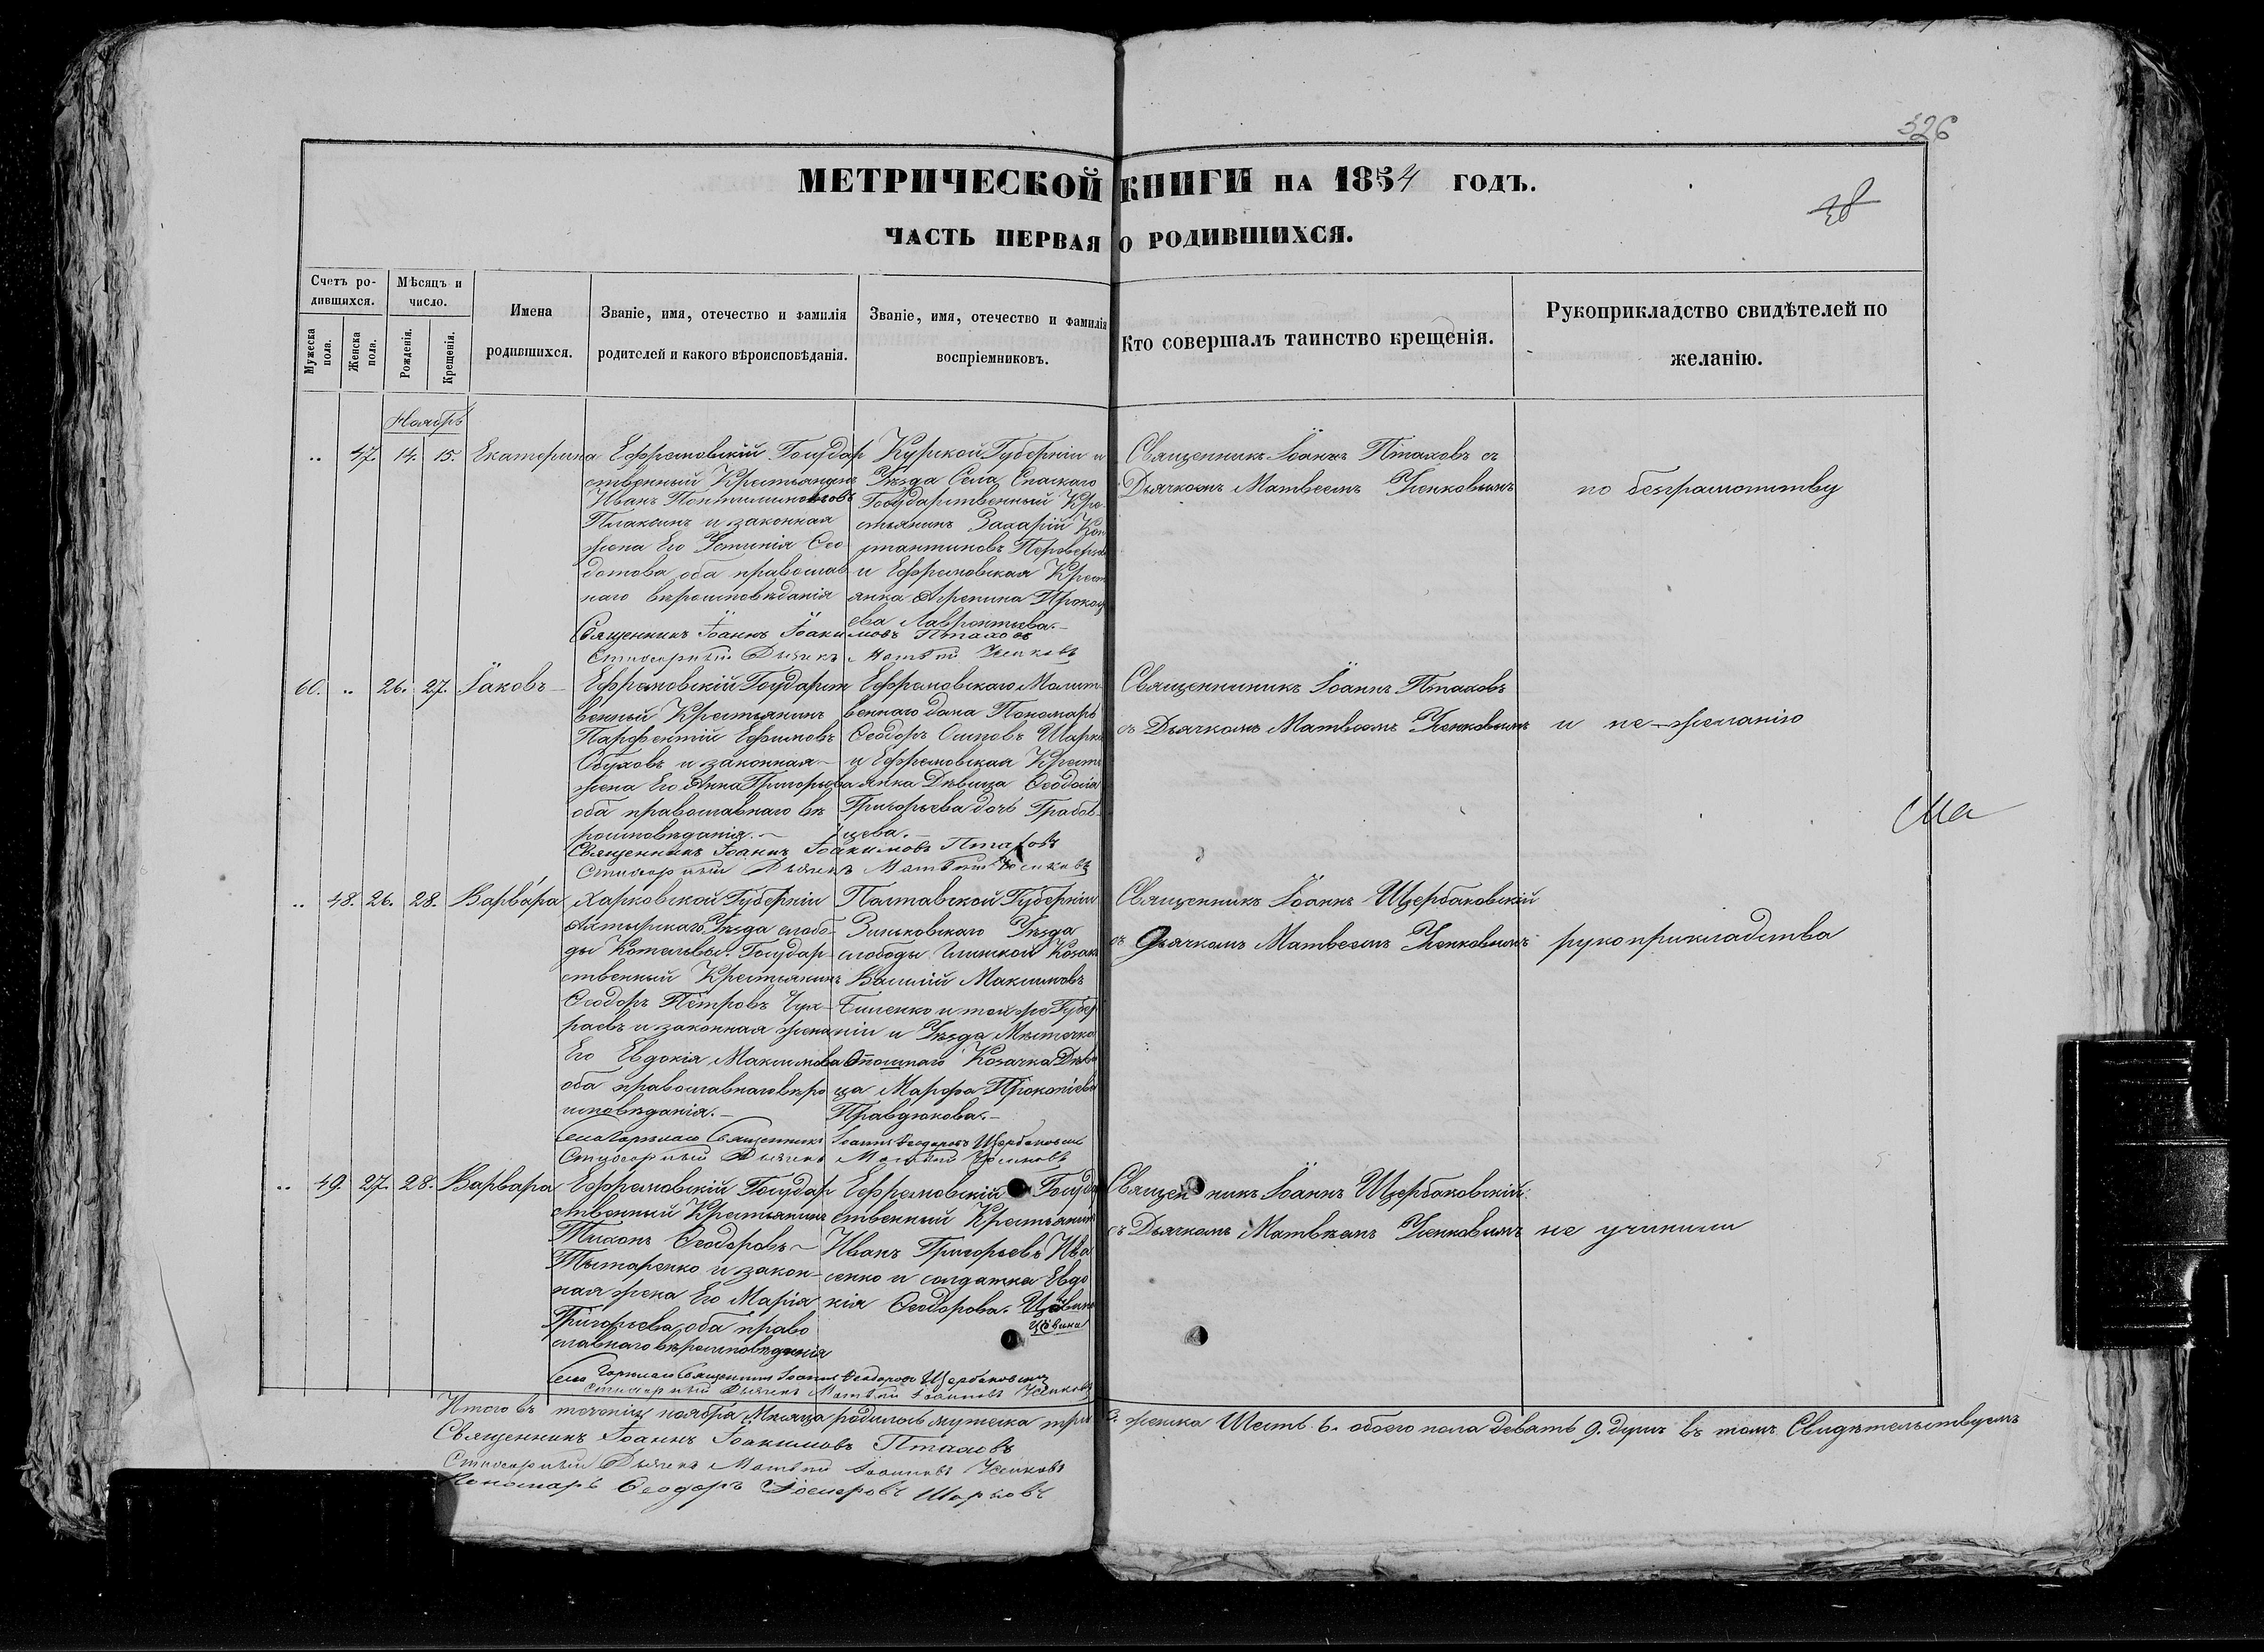 326
МЕТРИЧЕСКОЙ КНИГИ НА 1854 ГОДЪ.
ЧАСТЬ ПЕРВАЯ О РОДИВШИХСЯ.
Счетъ ро-
дившихся.
Мужеска
пола.
Женска
пола.
Мѣсяцъ и
число.
Рожденія.
Крещенія.
Имена
родившихся.
Званіе, имя, отечество и фамилія
родителей и какого вѣроисповѣданія.
Званіе, имя, отечество и фамилія
воспріемниковъ.
Кто совершалъ таинство крещенія.
Рукоприкладство свидѣтелей по
желанію.
Ноябрь
.. 47. 14. 15. Екатерина
Ефремовскій Государ
ственный Крестьянинъ
Иванъ
Плаксинъ и законная
жена Его Устинія Ѳео
дотова, оба православ
наго вѣроисповѣданія
Курской Губерніи и
Уѣзда Села Спаскаго
Государственный Кре-
стьянинъ Захарій Кон
стантиновъ
и Ефремовская Крест
янка Агрепина
ева Лаврентьева.
Священникъ Іоаннъ Птаховъ съ
Дьячкомъ Матвеемъ
по безграмотству
Священникъ Іоаннъ Іоакимовъ Птаховъ
Стихарный Дьячекъ Матѳій
60. .. 26. 27. Іаковъ
Ефремовскій Государст
венный Крестьянинъ
Парфентій Ефимовъ
Обуховъ и законная
жена Его Анна Григорьева
оба православнаго вѣ
роисповѣданія.
Ефремовскаго Молит
веннаго дома Пономарь
Ѳеодоръ Осиповъ
и Ефремовская Крест
янка Дѣвица Ѳеодосія
Григорьева дочь Грабов-
цева.
Священниникъ Іоаннъ Птаховъ
съ Дьячкомъ Матвеемъ
и не-желанію
Священникъ Іоаннъ Іоакимовъ Птаховъ
Стихарный Дьячекъ Матѳій
.. 48. 26. 28. Варвара
Харковской Губерніи
Ахтырскаго Уѣзда слобо-
ды Котельвы. Государ-
ственный Крестьянинъ
Ѳеодоръ Петровъ
раевъ и законная жена
Его Евдокія Максимова
оба православнаго вѣро
исповѣданія.
Полтавской Губерніи
Зиньковскаго Уѣзда
слободы Козакъ
Василій Максимовъ
Биленко и той же Губер
ніи и Уѣзда Мѣстечка
Опошнаго Козачка Дѣви
ца Марфа Прокопіева
Правдюкова.
Священникъ Іоаннъ Щербаковскій
съ Дьячкомъ Матвеемъ
рукоприкладства
Священникъ Іоаннъ Ѳеодоровъ Щербаковскій
Стихарный Дьячекъ Матѳій
.. 49. 27. 28. Варвара
Ефремовскій Государ
ственный Крестьянинъ
Тихонъ Ѳеодоровъ
Тытаренко и закон-
ная жена Его Марія
Григорьева, оба право
славнаго вѣроисповѣданія
Ефремовскій Госуда
ственный Крестьянинъ
Иванъ Григорьевъ
сенко и солдатка Евдо
кія Ѳеодорова.
Священникъ Іоаннъ Щербаковскій.
съ Дьячкомъ Матвѣемъ
не учинили
Священникъ Іоаннъ Ѳеодоровъ Щербаковскій
Стихарный Дьячекъ Матѳій Іоанновъ
Итого въ теченіи ноября Мѣсяца родилось мужеска три 3. женска Шесть 6. обоего пола девять 9. душъ въ томъ Свидѣтельствуемъ
Священникъ Іоаннъ Іоакимовъ Птаховъ
Стихарный Дьячекъ Матѳій Іоанновъ
Пономарь Ѳеодоръ